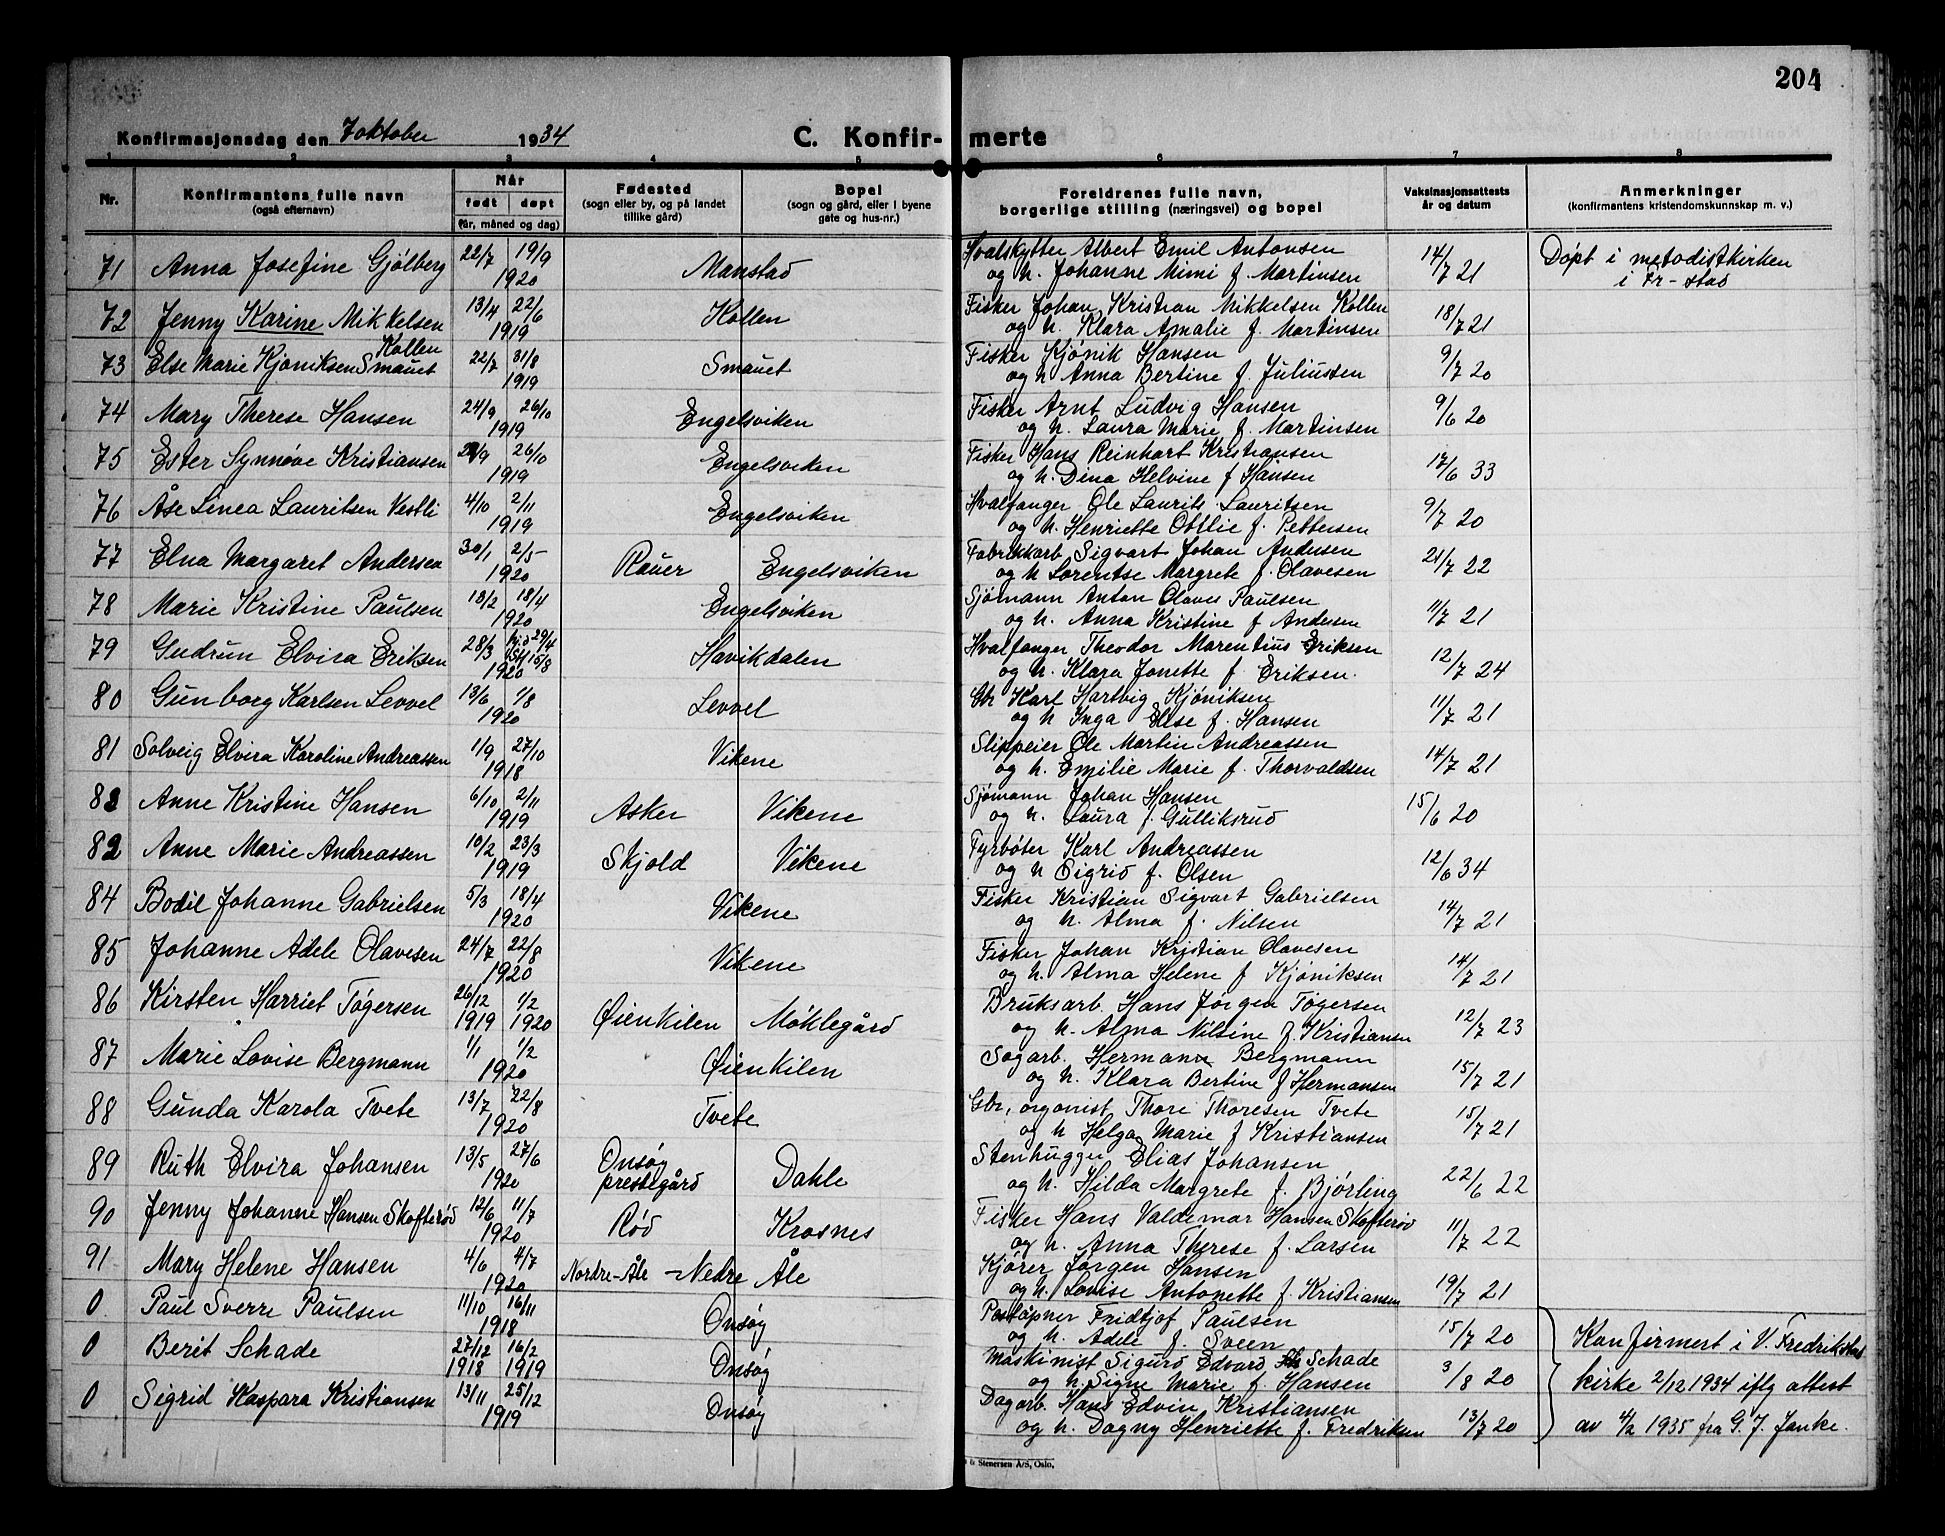 204
Konfirmasjonsdag den 7 oktober 1934 C. Konfir- merte
1 2 3 4 5 6 7 8
Nr. Konfirmantens fulle navn (også efternavn) Når født døpt (år, måned og dag) Fødested (sogn eller by, og på landet tillike gård) Bopel (sogn og gård, eller i byene gate og hus-nr.) Foreldrenes fulle navn, borgerlige stilling (næringsvei) og bopel Vaksinasjonsattests år og datum Anmerkninger (konfirmantens kristendomskunnskap m. v.)
71 Anna Josefine Gjølberg 22/7 19/9 1920 Manstad Hvalskytter Albert Emil Antonsen 14/7 21 Døpt i metodistkirken
og h. Johanne Mimi f. Martinsen i Fr-stad
72 Jenny Karine Mikkelsen Kollen 13/4 22/6 1919 Kollen Fisker Johan Kristian Mikkelsen Kollen 18/7 21
og h. Klara Amalie f. Martinsen
73 Else Marie Kjøniksen Smauet 22/7 31/8 1919 Smauet Fisker Kjønik Hansen 9/7 20
og h Anna Bertine f. Juliussen
74 Mary Therese Hansen 24/9 26/10 1919 Engelsviken Fisker Arnt Ludvig Hansen 9/6 20
og h. Laura Marie f. Martinsen
75 Ester Synnøve Kristiansen 26/10 1919 Engelsviken Fisker Hans Reinhart Kristiansen 33
og h. Dina Helvine f Hansen
76 Åse Linea Lauritsen Vestli 4/10 2/11 1919 Engelsviken Hvalfanger Ole Laurits Lauritsen 9/7 20
og h. Henriette Ottlie f. Pettersen
77 Elna Margaret Andersen 30/1 2/5 1920 Rauer Engelsviken Fabrikkarb Sigvart Johan Andersen 21/7 22
og h Lorentse Margrete f. Olavesen
78 Marie Kristine Paulsen 18/2 18/4 1920 Engelsviken Sjømann Anton Olaves Paulsen 11/7 21
og h. Anna Kristine f Andersen
79 Gudrun Elvira Eriksen 28/3 29/4 15/8 1920 Havikdalen Hvalfanger Theodor Marentius Eriksen 12/7 24
og h. Klara Jonette f Eriksen.
80 Gunborg Karlsen Levvel 13/6 1/8 1920 Levvel Gbr Karl Hartvig Kjøniksen 11/7 21
og h Inga Else f. Hansen
81 Solveig Elvira Karoline Andreassen 1/9 27/10 1918 Vikene Slippeier Ole Martin Andreassen 14/7 21
og h. Emilie Marie f. Thorvaldsen
82 Anne Kristine Hansen 6/10 2/11 1919 Asker Vikene Sjømann Johan Hansen 15/6 20
og h. Laura f. Gulliksrud
82 Anne Marie Andreassen 10/2 23/3 1919 Skjold Vikene Fyrbøter Karl Andreassen 12/6 34
og h Sigrid f. Olsen
84 Bodil Johanne Gabrielsen 5/3 18/4 1920 Vikene Fisker Kristian Sigvart Gabrielsen 14/7 21
og h. Alma f. Nilsen
85 Johanne Adele Olavesen 24/7 22/8 1920 Vikene Fisker Johan Kristian Olavesen 14/7 21
og h. Alma Helene f Kjøniksen
86 Kirsten Harriet Tøgersen 26/12 1919 1/2 1920 Øienkilen Møklegård Bruksarb. Hans Jørgen Tøgersen 12/7 23
og h. Alma Nilsine f. Kristiansen
87 Marie Lovise Bergmann 1/1 1/2 1920 Øienkilen Sagarb. Hermann Bergmann 15/7 21
og h. Klara Bertine f Hermansen
88 Gunda Karola Tvete 13/7 22/8 1920 Tvete Gbr, organist Thore Thoresen Tvete 15/7 21
og h Helga Marie f Kristiansen
89 Ruth Elvira Johansen 13/5 27/6 1920 Onsøy prestegård Dahle Stenhugger Elias Johansen 22/6 22
og h. Hilda Margrete f. Bjørling
90 Jenny Johanne Hansen Skofterød 12/6 11/7 1920 Rød Krosnes Fisker Hans Valdemar Hansen Skofterød 11/7 22
og h. Anna Therese f. Larsen
91 Mary Helene Hansen 4/6 4/7 1920 Nordre-Åle - Nedre Åle Kjører Jørgen Hansen 19/7 21
og h. Lovise Antonette f. Kristiansen
0 Paul Sverre Paulsen 11/10 16/11 1918 Onsøy Poståpner Fridtjof Paulsen 15/7 20 Konfirmert i V. Fredrikstad
og h. Adele f. Sveen
0 Berit Schade 27/12 1918 16/2 1919 Onsøy Maskinist Sigurd Edvard Schade 3/8 20 kirke 2/12 1934 iflg attest
og h. Signe Marie f. Hansen
0 Sigrid Kaspara Kristiansen 13/11 25/12 1919 Onsøy Dagarb. Hans Edvin Kristiansen 13/7 20 av 4/2 1935 fra G. J. Janke.
og h. Dagny Henriette f. Fredriksen
& Stenersen A/S, Oslo.